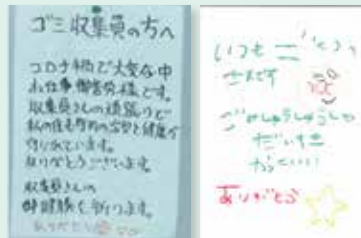 ゴミ収集員の方へ
コロナ禍で大変な中
お仕事御苦労様です。
収集員さんの頑張りで
私の住む町の安全と健康が
守られています。
ありがとうございます。
収集員さんの
御健康を祈ります。
いつも
ごみしゅうしゅうしゃ
だいすき
かっこいい
ありがとう